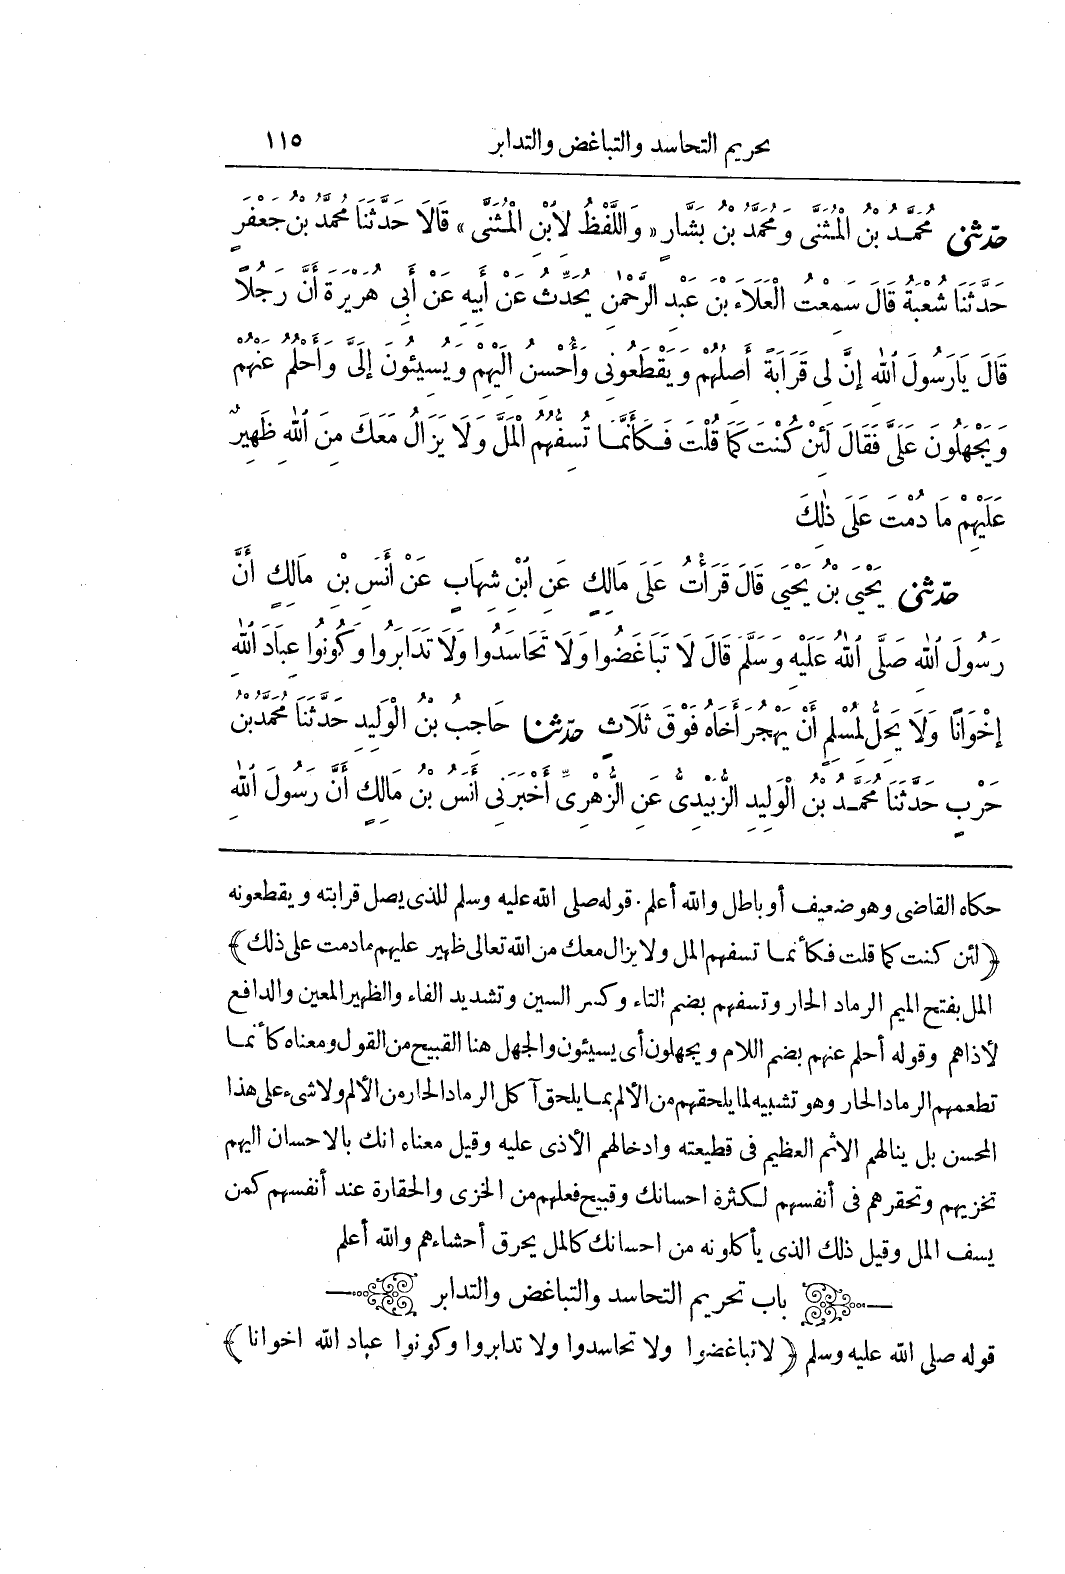 تحريم التحاسد والتباغض والتدابر ١١٥
حَدَّثَنِي مُحَمَّدُ بْنُ الْمُثَنَّى وَمُحَمَّدُ بْنُ بَشَّارٍ «وَاللَّفْظُ لِابْنِ الْمُثَنَّى» قَالَا حَدَّثَنَا مُحَمَّدُ بْنُ جَعْفَرٍ
حَدَّثَنَا شُعْبَةُ قَالَ سَمِعْتُ الْعَلَاءَ بْنَ عَبْدِ الرَّحْمٰنِ يُحَدِّثُ عَنْ أَبِيهِ عَنْ أَبِي هُرَيْرَةَ أَنَّ رَجُلًا
قَالَ يَارَسُولَ اللهِ إِنَّ لِي قَرَابَةً أَصِلُهُمْ وَيَقْطَعُونِي وَأُحْسِنُ إِلَيْهِمْ وَيُسِيئُونَ إِلَيَّ وَأَحْلُمُ عَنْهُمْ
وَيَجْهَلُونَ عَلَيَّ فَقَالَ لَئِنْ كُنْتَ كَمَا قُلْتَ فَكَأَنَّمَا تُسِفُّهُمُ الْمَلَّ وَلَا يَزَالُ مَعَكَ مِنَ اللهِ ظَهِيرٌ
عَلَيْهِمْ مَا دُمْتَ عَلَى ذٰلِكَ
حَدَّثَنِي يَحْيَى بْنُ يَحْيَى قَالَ قَرَأْتُ عَلَى مَالِكٍ عَنِ ابْنِ شِهَابٍ عَنْ أَنَسِ بْنِ مَالِكٍ أَنَّ
رَسُولَ اللهِ صَلَّى اللهُ عَلَيْهِ وَسَلَّمَ قَالَ لَا تَبَاغَضُوا وَلَا تَحَاسَدُوا وَلَا تَدَابَرُوا وَكُونُوا عِبَادَ اللهِ
إِخْوَانًا وَلَا يَحِلُّ لِمُسْلِمٍ أَنْ يَهْجُرَ أَخَاهُ فَوْقَ ثَلَاثٍ حَدَّثَنَا حَاجِبُ بْنُ الْوَلِيدِ حَدَّثَنَا مُحَمَّدُ بْنُ
حَرْبٍ حَدَّثَنَا مُحَمَّدُ بْنُ الْوَلِيدِ الزُّبَيْدِيُّ عَنِ الزُّهْرِيِّ أَخْبَرَنِي أَنَسُ بْنُ مَالِكٍ أَنَّ رَسُولَ اللهِ
حكاه القاضى وهو ضعيف أو باطل والله أعلم . قوله صلى الله عليه وسلم للذى يصل قرابته ويقطعونه
﴿لئن كنت كما قلت فكأنما تسفهم المل ولا يزال معك من الله تعالى ظهير عليهم مادمت على ذلك﴾
المل بفتح الميم الرماد الحار وتسفهم بضم التاء وكسر السين وتشديد الفاء والظهير المعين والدافع
لأذاهم وقوله أحلم عنهم بضم اللام ويجهلون أى يسيئون والجهل هنا القبيح من القول ومعناه كأنما
تطعمهم الرماد الحار وهو تشبيه لما يلحقهم من الألم بما يلحق آكل الرماد الحار من الألم ولا شىء على هذا
المحسن بل ينالهم الاثم العظيم فى قطيعته وادخالهم الأذى عليه وقيل معناه انك بالاحسان اليهم
تخزيهم وتحقرهم فى أنفسهم لكثرة احسانك وقبيح فعلهم من الخزى والحقارة عند أنفسهم كمن
يسف المل وقيل ذلك الذى يأكلونه من احسانك كالمل يحرق أحشاءهم والله أعلم
باب تحريم التحاسد والتباغض والتدابر
قوله صلى الله عليه وسلم ﴿لا تباغضوا ولا تحاسدوا ولا تدابروا وكونوا عباد الله اخوانا﴾